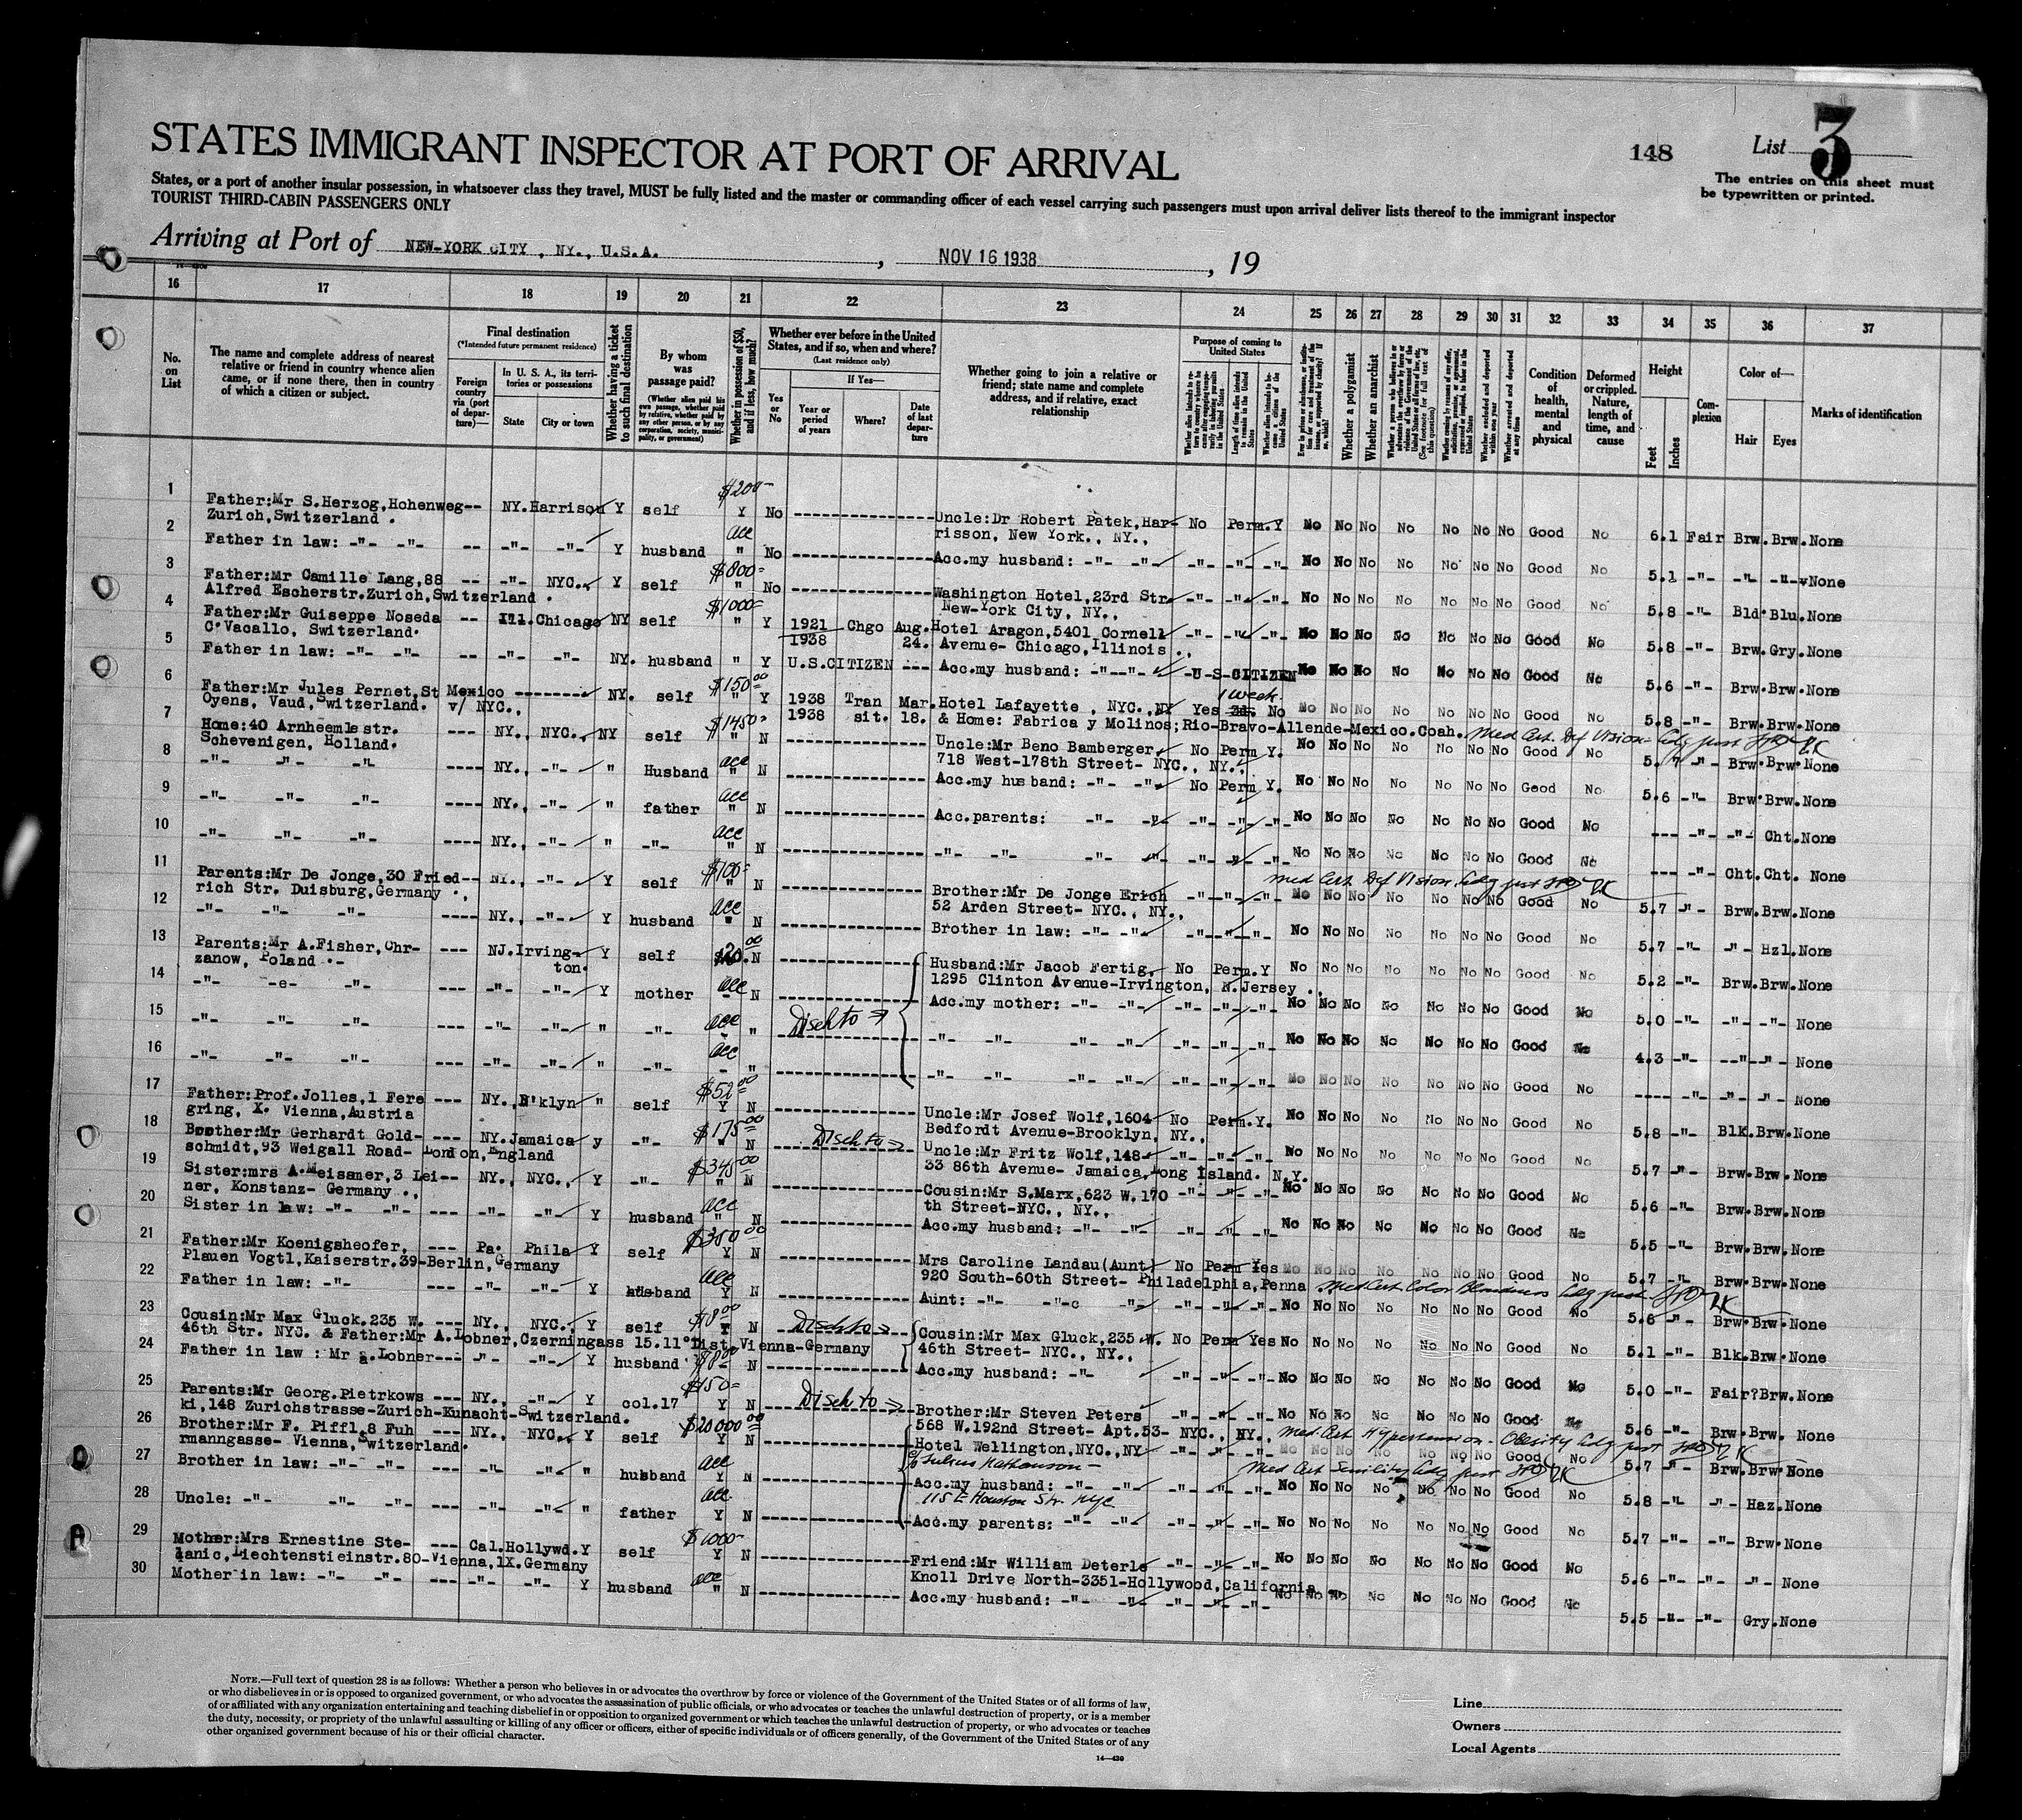 STATES IMMIGRANT INSPECTOR AT PORT OF ARRIVAL
148
List 3
The entries on this sheet must
be typewritten or printed.
States, or a port of another insular possession, in whatsoever class they travel, MUST be fully listed and the master or commanding officer of each vessel carrying such passengers must upon arrival deliver lists thereof to the immigrant inspector
TOURIST THIRD-CABIN PASSENGERS ONLY
Arriving at Port of NEW-YORK CITY, NY., U.S.A. , NOV 16 1938 , 19
16 17 18 19 20 21 22 23 24 25 26 27 28 29 30 31 32 33 34 35 36 37
No. on List
The name and complete address of nearest relative or friend in country whence alien came, or if none there, then in country of which a citizen or subject.
Final destination
(*Intended future permanent residence)
Foreign country via (port of departure)—
In U. S. A., its territories or possessions
State
City or town
Whether having a ticket to such final destination
By whom was passage paid?
(Whether alien paid his own passage, whether paid by relative, whether paid by any other person, or by any corporation, society, municipality, or government)
Whether in possession of $50, and if less, how much?
Whether ever before in the United States, and if so, when and where?
(Last residence only)
Yes or No
If Yes—
Year or period of years
Where?
Date of last departure
Whether going to join a relative or friend; state name and complete address, and if relative, exact relationship
Purpose of coming to United States
Length of time alien intends to remain in the United States
Whether alien intends to become a citizen of the United States
Whether a polygamist
Whether an anarchist
Condition of health, mental and physical
Deformed or crippled. Nature, length of time, and cause
Height
Feet
Inches
Complexion
Color of—
Hair
Eyes
Marks of identification
1 Father:Mr S.Herzog,Hohenweg-- NY. Harrison Y self $200- Y No Uncle:Dr Robert Patek,Har- No Perm. Y No No No No No No No Good No 6.1 Fair Brw. Brw. None
Zurich,Switzerland . risson, New York., NY.,
2 Father in law: -"- -"- -- -"- -"- Y husband acc " No Acc.my husband: -"- -"- -"- -"- -"- No No No No No No No Good No 5.1 -"- -"- -"- None
3 Father:Mr Camille Lang,88 -- -"- NYC., Y self $800- " No Washington Hotel,23rd Str -"- -"- -"- No No No No No No No Good No 5.8 -"- Bld. Blu. None
Alfred Escherstr.Zurich,Switzerland . New-York City, NY.,
4 Father:Mr Guiseppe Noseda -- Ill. Chicago NY self $1000- " Y 1921 1938 Chgo Aug. 24. Hotel Aragon,5401 Cornell -"- -"- -"- No No No No No No No Good No 5.8 -"- Brw. Gry. None
C.Vacallo, Switzerland. Avenue- Chicago,Illinois .,
5 Father in law: -"- -"- -- -"- -"- NY. husband " Y U.S.CITIZEN --- Acc.my husband: -"- -"- -U-S-CITIZEN No No No No No No No Good No 5.6 -"- Brw. Brw. None
6 Father:Mr Jules Pernet,St Mexico -------- NY. self $150.00 " Y 1938 1938 Tran sit. Mar. 18. Hotel Lafayette , NYC.,NY Yes 1 week No No No No No No No No Good No 5.8 -"- Brw. Brw. None
Oyens, Vaud,Switzerland. v/ NYC., & Home: Fabrica y Molinos;Rio-Bravo-Allende-Mexico.Coah.
7 Home:40 Arnheemlestr. --- NY., NYC., NY self $1450- " N Uncle:Mr Beno Bamberger, No Perm Y. No No No No No No No Good No 5.7 -"- Brw. Brw. None
Schevenigen, Holland. 718 West-178th Street- NYC., NY., Med Cert. Def Vision
8 -"- -"- -"- ---- NY., -"- " Husband acc " N Acc.my husband: -"- -"- No Perm Y. No No No No No No No Good No 5.6 -"- Brw. Brw. None
9 -"- -"- -"- ---- NY., -"- " father acc " N Acc.parents: -"- -"- -"- -"- -"- No No No No No No No Good No --- -"- -"- Cht. None
10 -"- -"- -"- ---- NY., -"- " -"- acc " N -"- -"- -"- -"- -"- -"- -"- No No No No No No No Good No --- -"- Cht. Cht. None
11 Parents:Mr De Jonge,30 Fried-- NY., -"- Y self $100- " N Brother:Mr De Jonge Erich -"- -"- -"- No No No No No No No Good No 5.7 -"- Brw. Brw. None
rich Str. Duisburg,Germany ., 52 Arden Street- NYC., NY., Med Cert. Def Vision
12 -"- -"- -"- ---- NY., -"- Y husband acc " N Brother in law: -"- -"- -"- -"- -"- No No No No No No No Good No 5.7 -"- -"- Hzl. None
13 Parents:Mr A.Fisher,Chr- --- NJ. Irving-ton. Y self $20.00 N Husband:Mr Jacob Fertig, No Perm. Y No No No No No No No Good No 5.2 -"- Brw. Brw. None
zanow, Poland .- 1295 Clinton Avenue-Irvington, N.Jersey .,
14 -"- -e- -"- --- -"- -"- Y mother acc N Acc.my mother: -"- -"- -"- -"- -"- No No No No No No No Good No 5.0 -"- -"- -"- None
15 -"- -"- -"- --- -"- -"- " -"- acc " Disch to -"- -"- -"- -"- -"- -"- -"- No No No No No No No Good No 4.3 -"- -"- -"- None
16 -"- -"- -"- --- -"- -"- " -"- acc " -"- -"- -"- -"- -"- -"- -"- No No No No No No No Good No ---- -"- -"- -"- None
17 Father:Prof.Jolles,1 Fere --- NY., B'klyn " self $52.00 Y N Uncle:Mr Josef Wolf,1604 No Perm. Y. No No No No No No No Good No 5.8 -"- Blk. Brw. None
gring, X. Vienna,Austria Bedfordt Avenue-Brooklyn, NY.,
18 Brother:Mr Gerhardt Gold- --- NY. Jamaica y -"- $175.00 " N Disch to Uncle:Mr Fritz Wolf,148- -"- -"- -"- No No No No No No No Good No 5.7 -"- Brw. Brw. None
schmidt,93 Weigall Road- London,England 33 86th Avenue- Jamaica,Long Island. N.Y.
19 Sister:mrs A.Meissner,3 Lei-- NY., NYC., Y -"- $345.00 " N Cousin:Mr S.Marx,623 W.170 -"- -"- -"- No No No No No No No Good No 5.6 -"- Brw. Brw. None
ner, Konstanz- Germany ., th Street-NYC., NY.,
20 Sister in law: -"- -"- --- -"- -"- Y husband acc " N Acc.my husband: -"- -"- -"- -"- -"- No No No No No No No Good No 5.5 -"- Brw. Brw. None
21 Father:Mr Koenigsheofer, --- Pa. Phila Y self $350.00 Y N Mrs Caroline Landau(Aunt) No Perm Yes No No No No No No No Good No 5.7 -"- Brw. Brw. None
Plauen Vogtl,Kaiserstr.39-Berlin,Germany 920 South-60th Street- Philadelphia,Penna Med Cert Color Blindness
22 Father in law: -"- --- -"- -"- Y husband acc Y N Aunt: -"- -"-c -"- -"- -"- -"- No No No No No No No Good No 5.6 -"- Brw. Brw. None
23 Cousin:Mr Max Gluck.235 W. --- NY., NYC., Y self $8.00 Y N Disch to Cousin:Mr Max Gluck,235 W. No Perm Yes No No No No No No No Good No 5.1 -"- Blk. Brw. None
46th Str. NYC. & Father:Mr A.Lobner,Czerningass 15.11°Dist.Vienna-Germany 46th Street- NYC., NY.,
24 Father in law : Mr a.Lobner--- -"- -"- Y husband $8.00 N Acc.my husband: -"- -"- -"- -"- No No No No No No No Good No 5.0 -"- Fair? Brw. None
25 Parents:Mr Georg.Pietrkows --- NY., -"- Y col.17 $150- Y N Disch to Brother:Mr Steven Peters -"- -"- -"- No No No No No No No Good 5.6 -"- Brw. Brw. None
ki,148 Zurichstrasse-Zurich-Kunacht-Switzerland. 568 W.192nd Street- Apt.53- NYC., NY., Med. Cert Hypertension - Obesity
26 Brother:Mr F. Piffl,8 Fuh --- NY., NYC., Y self $20000.00 Y N Hotel Wellington,NYC.,NY -"- -"- -"- No No No No No No No Good No 5.7 -"- Brw. Brw. None
rmanngasse- Vienna,Switzerland. c/o Julius Mathewson - Med Cert Senility
27 Brother in law: -"- -"- --- -"- -"- " husband acc Y N Acc.my husband: -"- -"- -"- -"- -"- No No No No No No No Good No 5.8 -"- -"- Haz. None
115 E Houston Str. nyc
28 Uncle: -"- -"- -"- --- -"- -"- " father acc Y N Acc.my parents: -"- -"- -"- -"- -"- No No No No No No No Good No 5.7 -"- -"- Brw. None
29 Mother:Mrs Ernestine Ste- --- Cal. Hollywd. Y self $1000- Y N Friend:Mr William Deterle -"- -"- -"- No No No No No No No Good No 5.6 -"- -"- -"- None
lanic,Liechtenstieinstr.80-Vienna,1X.Germany Knoll Drive North-3351-Hollywood,California
30 Mother in law: -"- -"- --- -"- -"- Y husband acc " N Acc.my husband: -"- -"- -"- -"- -"- No No No No No No No Good No 5.5 -"- -"- Gry. None
NOTE.—Full text of question 28 is as follows: Whether a person who believes in or advocates the overthrow by force or violence of the Government of the United States or of all forms of law,
or who disbelieves in or is opposed to organized government, or who advocates the assassination of public officials, or who advocates or teaches the unlawful destruction of property, or is a member
of or affiliated with any organization entertaining and teaching disbelief in or opposition to organized government or which teaches the unlawful destruction of property, or who advocates or teaches
the duty, necessity, or propriety of the unlawful assaulting or killing of any officer or officers, either of specific individuals or of officers generally, of the Government of the United States or of any
other organized government because of his or their official character.
14—430
Line
Owners
Local Agents